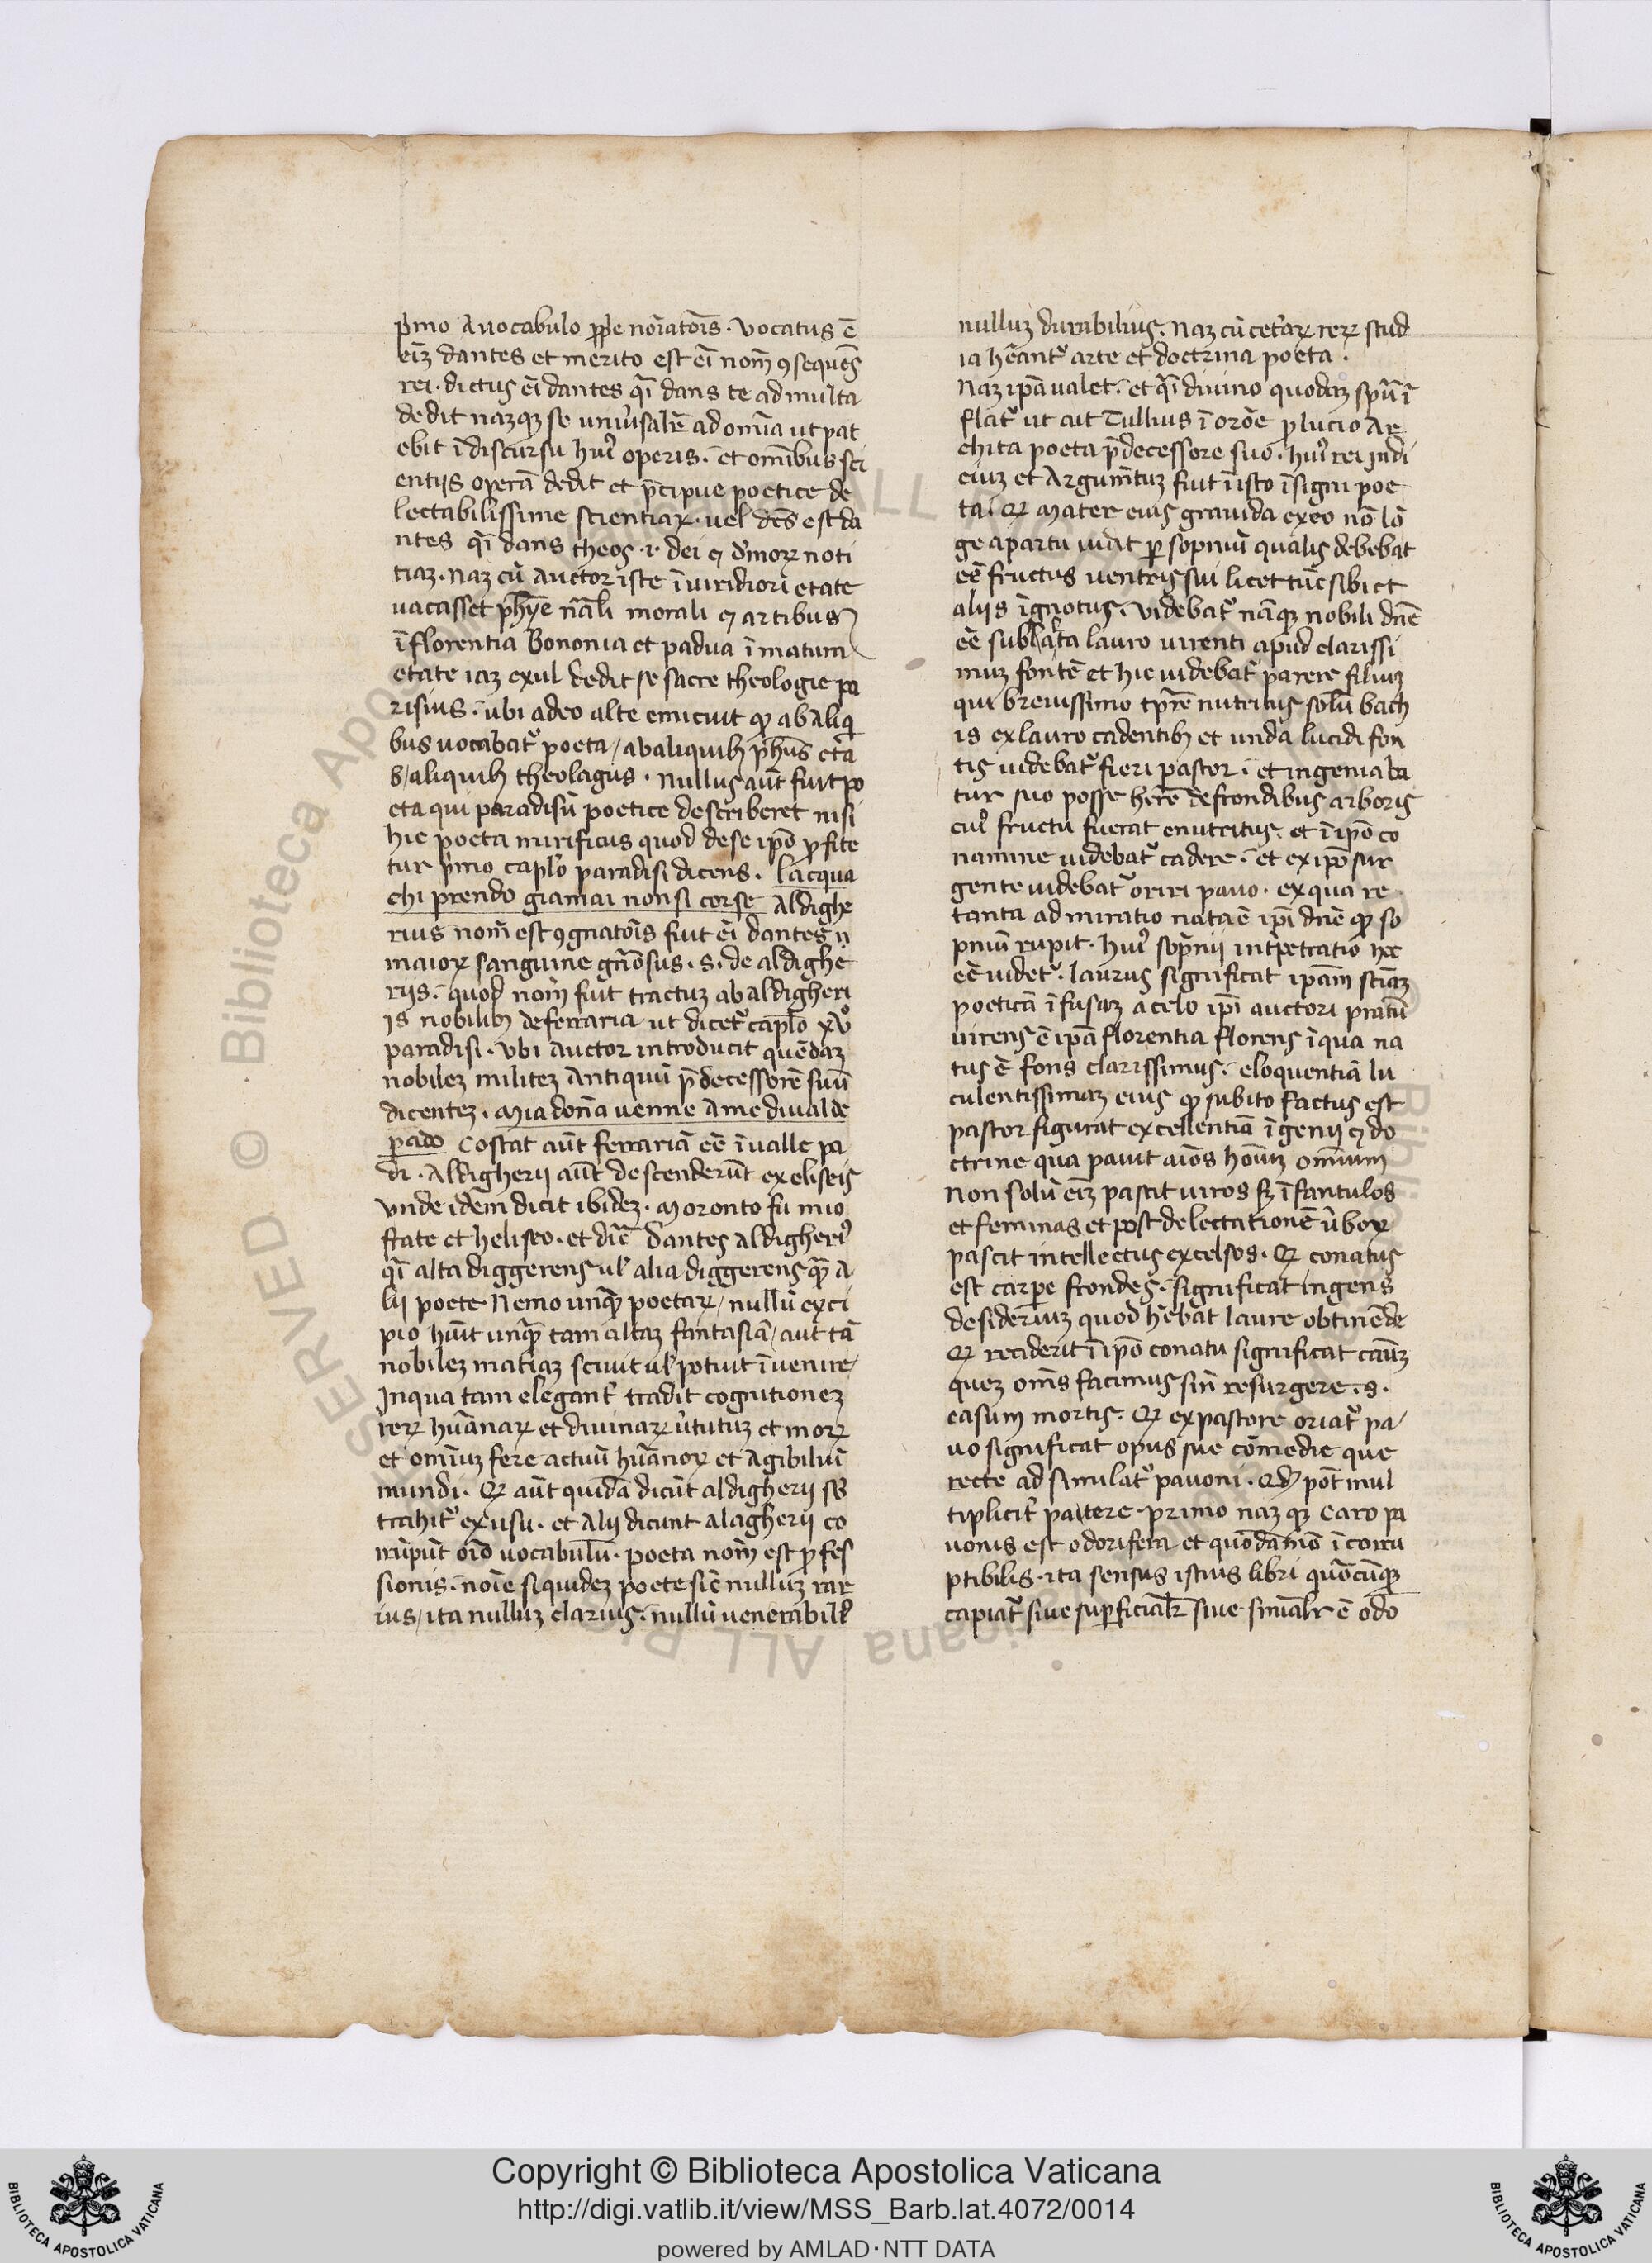 p̾mo a uocabulo ppͤe noi͞atoi͞s . vocatus ē
ei͞ꝫ dantes et merito est ei͞ nom̄ ꝯsequēs
rei . dictus ei͞ dantes q̄i dans te ad multa
dedit naꝫqꝫ se uniu̾salr̄ ad omīa ut pat
ebit ī discursu huiꝰ operis . et omībus sci
entijs operā dedit et p̄cipue poetice de
lectabilissime scientiaꝝ . uel dc̄s est da
ntes q̄i dans theos .i. dei ⁊ diuinoꝝ noti
tiaꝫ . Naꝫ cū auctor iste ī uiridiori etate
uacasset ph̄ye nāli morali ⁊ artibus
ī florentia Bononia et padua ī matura
etate iaꝫ exul dedit se sacre theologie pa
risius . ubi adeo alte emicuit ꝙ ab aliq
bus uocabat̾ poeta / ab aliquibꝫ ph̄us et a
b / aliquibꝫ theolagus . Nullus aūt fuit po
eta qui paradisū poetice describeret nisi
hic poeta mirificus quod de se ip̄o ꝓfite
tur p̾mo caplō paradisi dicens . lacqua
chi prendo giamai non si corse Aldighe
rius nom̄ est ꝯgnatoi͞s fuit ei͞ dantes n
maioꝝ sanguine gn̄osus . s. de aldighe
rijs . quod nom̄ fuit tractuꝫ ab aldigheri
is nobilibꝫ de ferraria ut dicet̾ caplō xvͦ
paradisi . vbi auctor introducit quēdaꝫ
nobileꝫ militeꝫ antiquū p̄decessorē suū
dicenteꝫ . Mia don̄a uenne a me di ual de
pado Costat aūt ferrariā eē ī ualle pa
di . Aldigherij aūt descenderūt ex eliseis
vnde idem̄ dicit ibideꝫ . Moronto fu mio
frate et heliseo . et di͞c dantes aldigheriꝰ
q̄i alta diggerens ul̾ alia diggerens q̄ꝫ a
lij poete . Nemo unq̄ꝫ poetaꝝ / nullū exci
pio huīt unq̄ꝫ tam altaꝫ fantasiā / aut tā
nobileꝫ mat̾iaꝫ sciuit ul̾ potuit īuenire /
In qua tam elegant̾ tradit cognitioneꝫ
reꝝ huānaꝝ et diuinaꝝ u̾tutuꝫ et moꝝ
et omīuꝫ fere actuū huānoꝝ et agibiliū
mundi . Qꝛ aūt quidā dicūt aldigherij sꝫ
trahit̾ ex usu . et alij dicunt alagherij co
rrūpūt oīo uocabulū . poeta nom̄ est ꝓfes
sionis . noīe siquideꝫ poete sic̄ nulluꝫ rar
ius / ita nulluꝫ clarius . nullū uenerabili᷑
nulluꝫ durabilius . Naꝫ cū cet̾aꝝ reꝝ stud
ia hēant̾ arte et doctrina poeta .
Naꝫ ip̄a ualet . et q̄i diuino quodaꝫ sp̄u ī
flat̾ ut ait Tullius ī orōe ꝓ lucio ar
chita poeta p̄decessore suo . huiꝰ rei Indi
ciuꝫ et argum̄tuꝫ fuit ī isto īsigni poe
ta . Qꝛ mater eius grauida ex eo nō lō
ge a partu uidit ꝑ sopniū qualis debebat
eē fructus uentris sui licet tūc sibi et
alijs īgnotus . Videbat̾ nāqꝫ nobili dn̄e
eē sub alta lauro uirenti apud clarissi
muꝫ fontē et hic uidebat̾ parere filiuꝫ
qui breuissimo tpr̄e nutritus solū bach
is ex lauro cadentibꝫ et unda lucidi fon
tis uidebat̾ fieri pastor . et ingeniaba
tur suo posse herē de frondibus arboris
cuiꝰ fructu fuerat enutritus . et ī ip̄o co
namine uidebat̾ cadere . et ex ip̄o sur
gente uidebat̾ oriri pauo . ex qua re
tanta admiratio nata ē ip̄i dn̄e ꝙ so
pniū rupit . huiꝰ sop̄nij int̾pretratio hec
eē uidet̾ . laurus significat ip̄am sciāꝫ
poeticā īfusaꝫ a celo ip̄i auctori pratū
uirens ē ip̄a florentia florens ī qua na
tus ē fons clarissimus . eloquentiā lu
culentissimaꝫ eius ꝙ subito factus est
pastor figurat excellentiā īgenij ⁊ do
ctrine qua pauit aīos hoīuꝫ omniuꝫ
Non solū ei͞ꝫ pascit uiros sꝫ īfantulos
et feminas et post delectationē u̾boꝝ
pascit intellectus excelsos . Qꝛ conatus
est carpe frondes . significat ingens
desideriuꝫ quod hēbat laure obtinēde
Qꝛ reciderit ī ip̄o conatu significat casuꝫ
queꝫ om̄s facimus sin̄ resurgere . s.
casum mortis . Qꝛ ex pastore oriat̾ pa
uo significat opus sue cōmedie que
recte ad simulat̾ pauoni . Qđ pōt mul
tiplicit̾ patere . primo naꝫqꝫ caro pa
uonis est odorifera et quodāmō ī corru
ptibilis . ita sensus istius libri quōcūqꝫ
capiat̾ siue suꝑficialr̄ siue sinialr̄ ē odo
Copyright © Biblioteca Apostolica Vaticana
http://digi.vatlib.it/view/MSS_Barb.lat.4072/0014
powered by AMLAD·NTT DATA
BIBLIOTECA APOSTOLICA VATICANA
BIBLIOTECA APOSTOLICA VATICANA